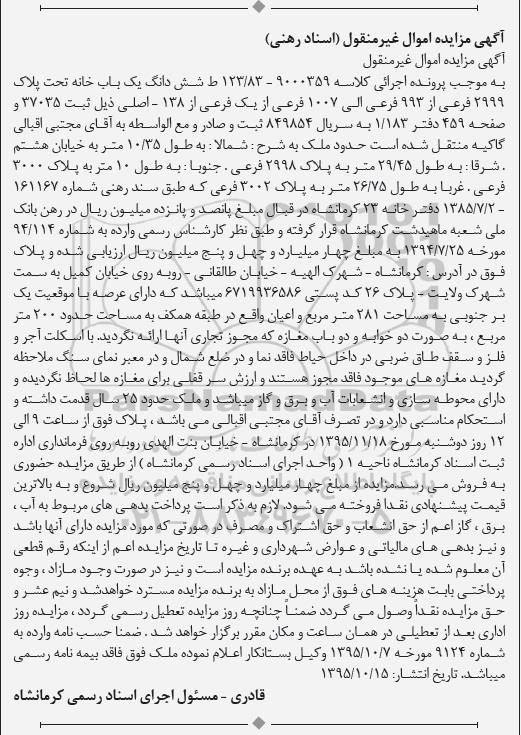 آگهی مزایده اموال غیرمنقول (اسناد رهنی)
آگهی مزایده اموال غیرمنقول
به موجب پرونده اجرائی کلاسه ۹۰۰۰۳۵۹ - ۱۲۳/۸۳ ط شش دانگ یک باب خانه تحت پلاک
۲۹۹۹ فرعی از ۹۹۳ فرعی الی ۱۰۰۷ فرعی از یک فرعی از ۱۳۸ - اصلی ذیل ثبت ۳۷۰۳۵ و
صفحه ۴۵۹ دفتر ۱/۱۸۳ به سریال ۸۴۹۸۵۴ ثبت و صادر و مع الواسطه به آقای مجتبی اقبالی
گاکیه منتقل شده است حدود ملک به شرح : شمالا : به طول ۱۰/۳۵ متر به خیابان هشتم
. شرقا : به طول ۲۹/۴۵ متر به پلاک ۲۹۹۸ فرعی . جنوبا : به طول ۱۰ متر به پلاک ۳۰۰۰
فرعی . غربا به طول ۲۶/۷۵ متر به پلاک ۳۰۰۲ فرعی که طبق سند رهنی شماره ۱۶۱۱۶۷
- ۱۳۸۵/۷/۲ دفتر خانه ۲۳ کرمانشاه در قبال مبلغ پانصد و پانزده میلیون ریال در رهن بانک
ملی شعبه ماهیدشت کرمانشاه قرار گرفته و طبق نظر کارشناس رسمی وارده به شماره ۹۴/۱۱۴
مورخه ۱۳۹۴/۷/۲۵ به مبلغ چهار میلیارد و چهل و پنج میلیون ریال ارزیابی شده و پلاک
فوق در آدرس : کرمانشاه - شهرک الهیه - خیابان طالقانی - روبه روی خیابان کمیل به سمت
شهرک ولایت - پلاک ۲۶ کد پستی ۶۷۱۹۹۳۶۵۸۶ میباشد که دارای عرصه با موقعیت یک
بر جنوبی به مساحت ۲۸۱ متر مربع و اعیان واقع در طبقه همکف به مساحت حدود ۲۰۰ متر
مربع ، به صورت دو خوابه و دو باب مغازه که مجوز تجاری آنها ارائه نگردید. با اسکلت آجر و
فلز و سقف طاق ضربی در داخل حیاط فاقد نما و در ضلع شمال و در معبر نمای سنگ ملاحظه
گردید مغازه های موجود فاقد مجوز هستند و ارزش سر قفلی برای مغازه ها لحاظ نگردیده و
دارای محوطه سازی و انشعابات آب و برق و گاز میباشد و ملک حدود ۲۵ سال قدمت داشته و
استحکام مناسبی دارد و در تصرف آقای مجتبی اقبالی می باشد ، پلاک فوق از ساعت ۹ الی
۱۲ روز دوشنبه مورخ ۱۳۹۵/۱۱/۱۸ در کرمانشاه - خیابان بنت الهدی روبه روی فرمانداری اداره
ثبت اسناد کرمانشاه ناحیه ۱ ( واحد اجرای اسناد رسمی کرمانشاه ) از طریق مزایده حضوری
به فروش می رسد.مزایده از مبلغ چهار میلیارد و چهل و پنج میلیون ریال شروع و به بالاترین
قیمت پیشنهادی نقدا فروخته می شود. لازم به ذکر است پرداخت بدهی های مربوط به آب ،
برق ، گاز اعم از حق انشعاب و حق اشتراک و مصرف در صورتی که مورد مزایده دارای آنها باشد
و نیز بدهی های مالیاتی و عوارض شهرداری و غیره تا تاریخ مزایده اعم از اینکه رقم قطعی
آن معلوم شده یا نشده باشد به عهده برنده مزایده است و نیز در صورت وجود مازاد ، وجوه
پرداختی بابت هزینه های فوق از محل مازاد به برنده مزایده مسترد خواهدشد و نیم عشر و
حق مزایده نقداً وصول می گردد ضمناً چنانچه روز مزایده تعطیل رسمی گردد ، مزایده روز
اداری بعد از تعطیلی در همان ساعت و مکان مقرر برگزار خواهد شد . ضمنا حسب نامه وارده به
شماره ۹۱۲۴ مورخه ۱۳۹۵/۱۰/۷ وکیل بستانکار اعلام نموده ملک فوق فاقد بیمه نامه رسمی
میباشد. تاریخ انتشار: ۱۳۹۵/۱۰/۱۵
قادری - مسئول اجرای اسناد رسمی کرمانشاه